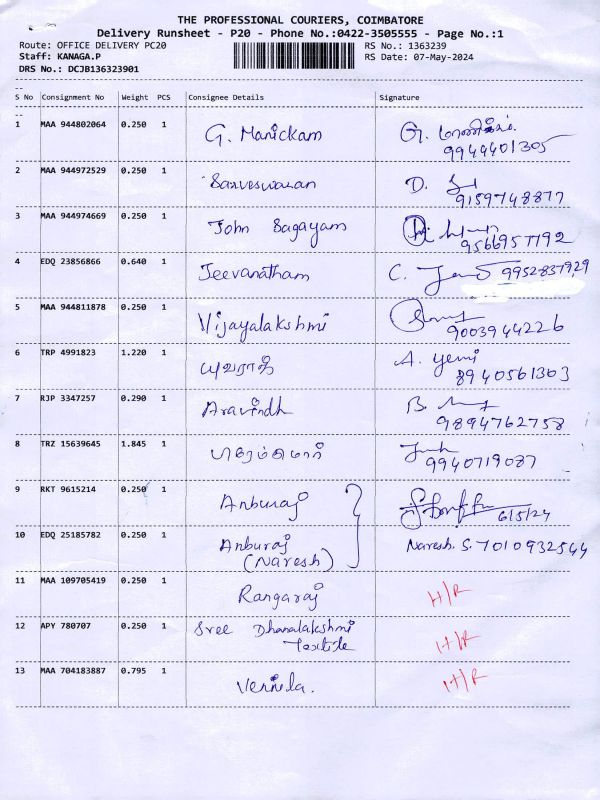 THE PROFESSIONAL COURIERS, COIMBATORE
Delivery Runsheet - P20 - Phone No.:0422-3505555 - Page No.:1
Route: OFFICE DELIVERY PC20 RS No.: 1363239
Staff: KANAGA.P RS Date: 07-May-2024
DRS No.: DCJB136323901
S No Consignment No Weight PCS Consignee Details Signature
1 MAA 944802064 0.250 1 G. Manickam G. மாணிக்கம்
9944401305
2 MAA 944972529 0.250 1 Sarveswaran D.
9159748877
3 MAA 944974669 0.250 1 John Sagayam
9566957792
4 EDQ 23856866 0.640 1 Jeevanatham C. 9952837929
5 MAA 944811878 0.250 1 Vijayalakshmi
9003944226
6 TRP 4991823 1.220 1 யுவராத் A.
8940561303
7 RJP 3347257 0.290 1 Aravindh B.
9894762758
8 TRZ 15639645 1.845 1
9940719087
9 RKT 9615214 0.250 1 Anburaj 6/5/24
10 EDQ 25185782 0.250 1 Anburaj Naresh. S. 7010932544
(Naresh)
11 MAA 109705419 0.250 1 Rangaraj H/R
12 APY 780707 0.250 1 Sree Dhanalakshmi
Textile H/R
13 MAA 704183887 0.795 1 Vennila. H/R